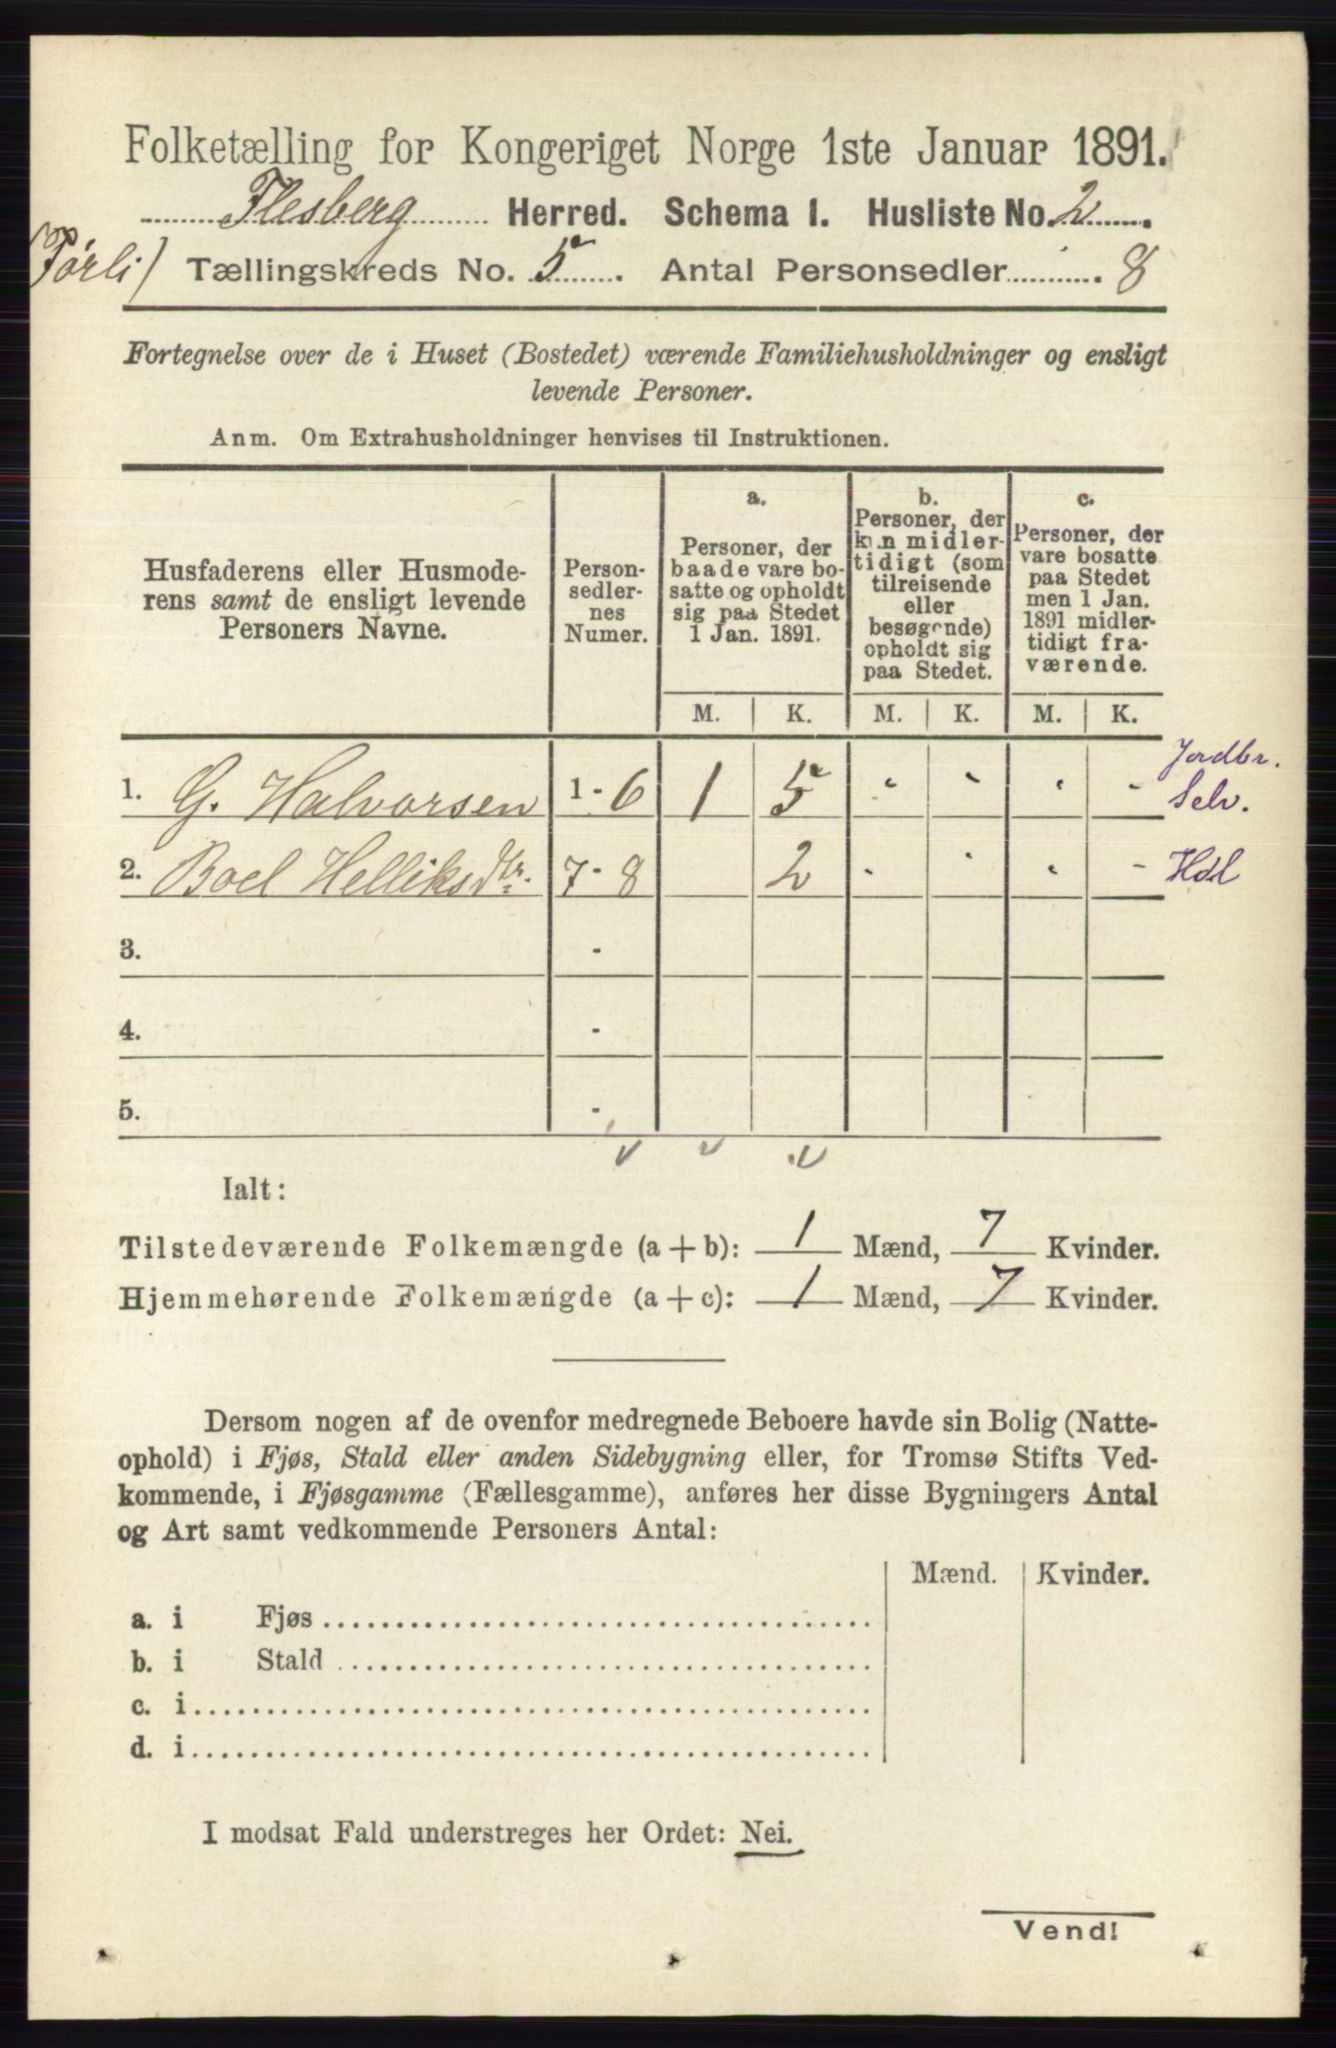 Folketælling for Kongeriget Norge 1ste Januar 1891.
Flesberg Herred. Schema 1. Husliste No. 2
(Pørli) Tællingskreds No. 5. Antal Personsedler 8
Fortegnelse over de i Huset (Bostedet) værende Familiehusholdninger og ensligt
levende Personer.
Anm. Om Extrahusholdninger henvises til Instruktionen.
Husfaderens eller Husmode-
rens samt de ensligt levende
Personers Navne.
Person-
sedler-
nes
Numer.
a.
Personer, der
baade vare bo-
satte og opholdt
sig paa Stedet
1 Jan. 1891.
b.
Personer, der
kun midler-
tidigt (som
tilreisende
eller
besøgende)
opholdt sig
paa Stedet.
c.
Personer, der
vare bosatte
paa Stedet
men 1 Jan.
1891 midler-
tidigt fra-
værende.
M. K. M. K. M. K.
Jordbr.
1. G. Halvorsen 1 - 6 1 5 - - - - Selv.
2. Boel Helliksdtr. 7 - 8 2 - - - - Hdl
3. -
4. -
5. -
Ialt:
Tilstedeværende Folkemængde (a + b): 1 Mænd, 7 Kvinder.
Hjemmehørende Folkemængde (a + c): 1 Mænd, 7 Kvinder.
Dersom nogen af de ovenfor medregnede Beboere havde sin Bolig (Natte-
ophold) i Fjøs, Stald eller anden Sidebygning eller, for Tromsø Stifts Ved-
kommende, i Fjøsgamme (Fællesgamme), anføres her disse Bygningers Antal
og Art samt vedkommende Personers Antal:
Mænd. Kvinder.
a. i Fjøs
b. i Stald
c. i
d. i
I modsat Fald understreges her Ordet: Nei.
Vend!